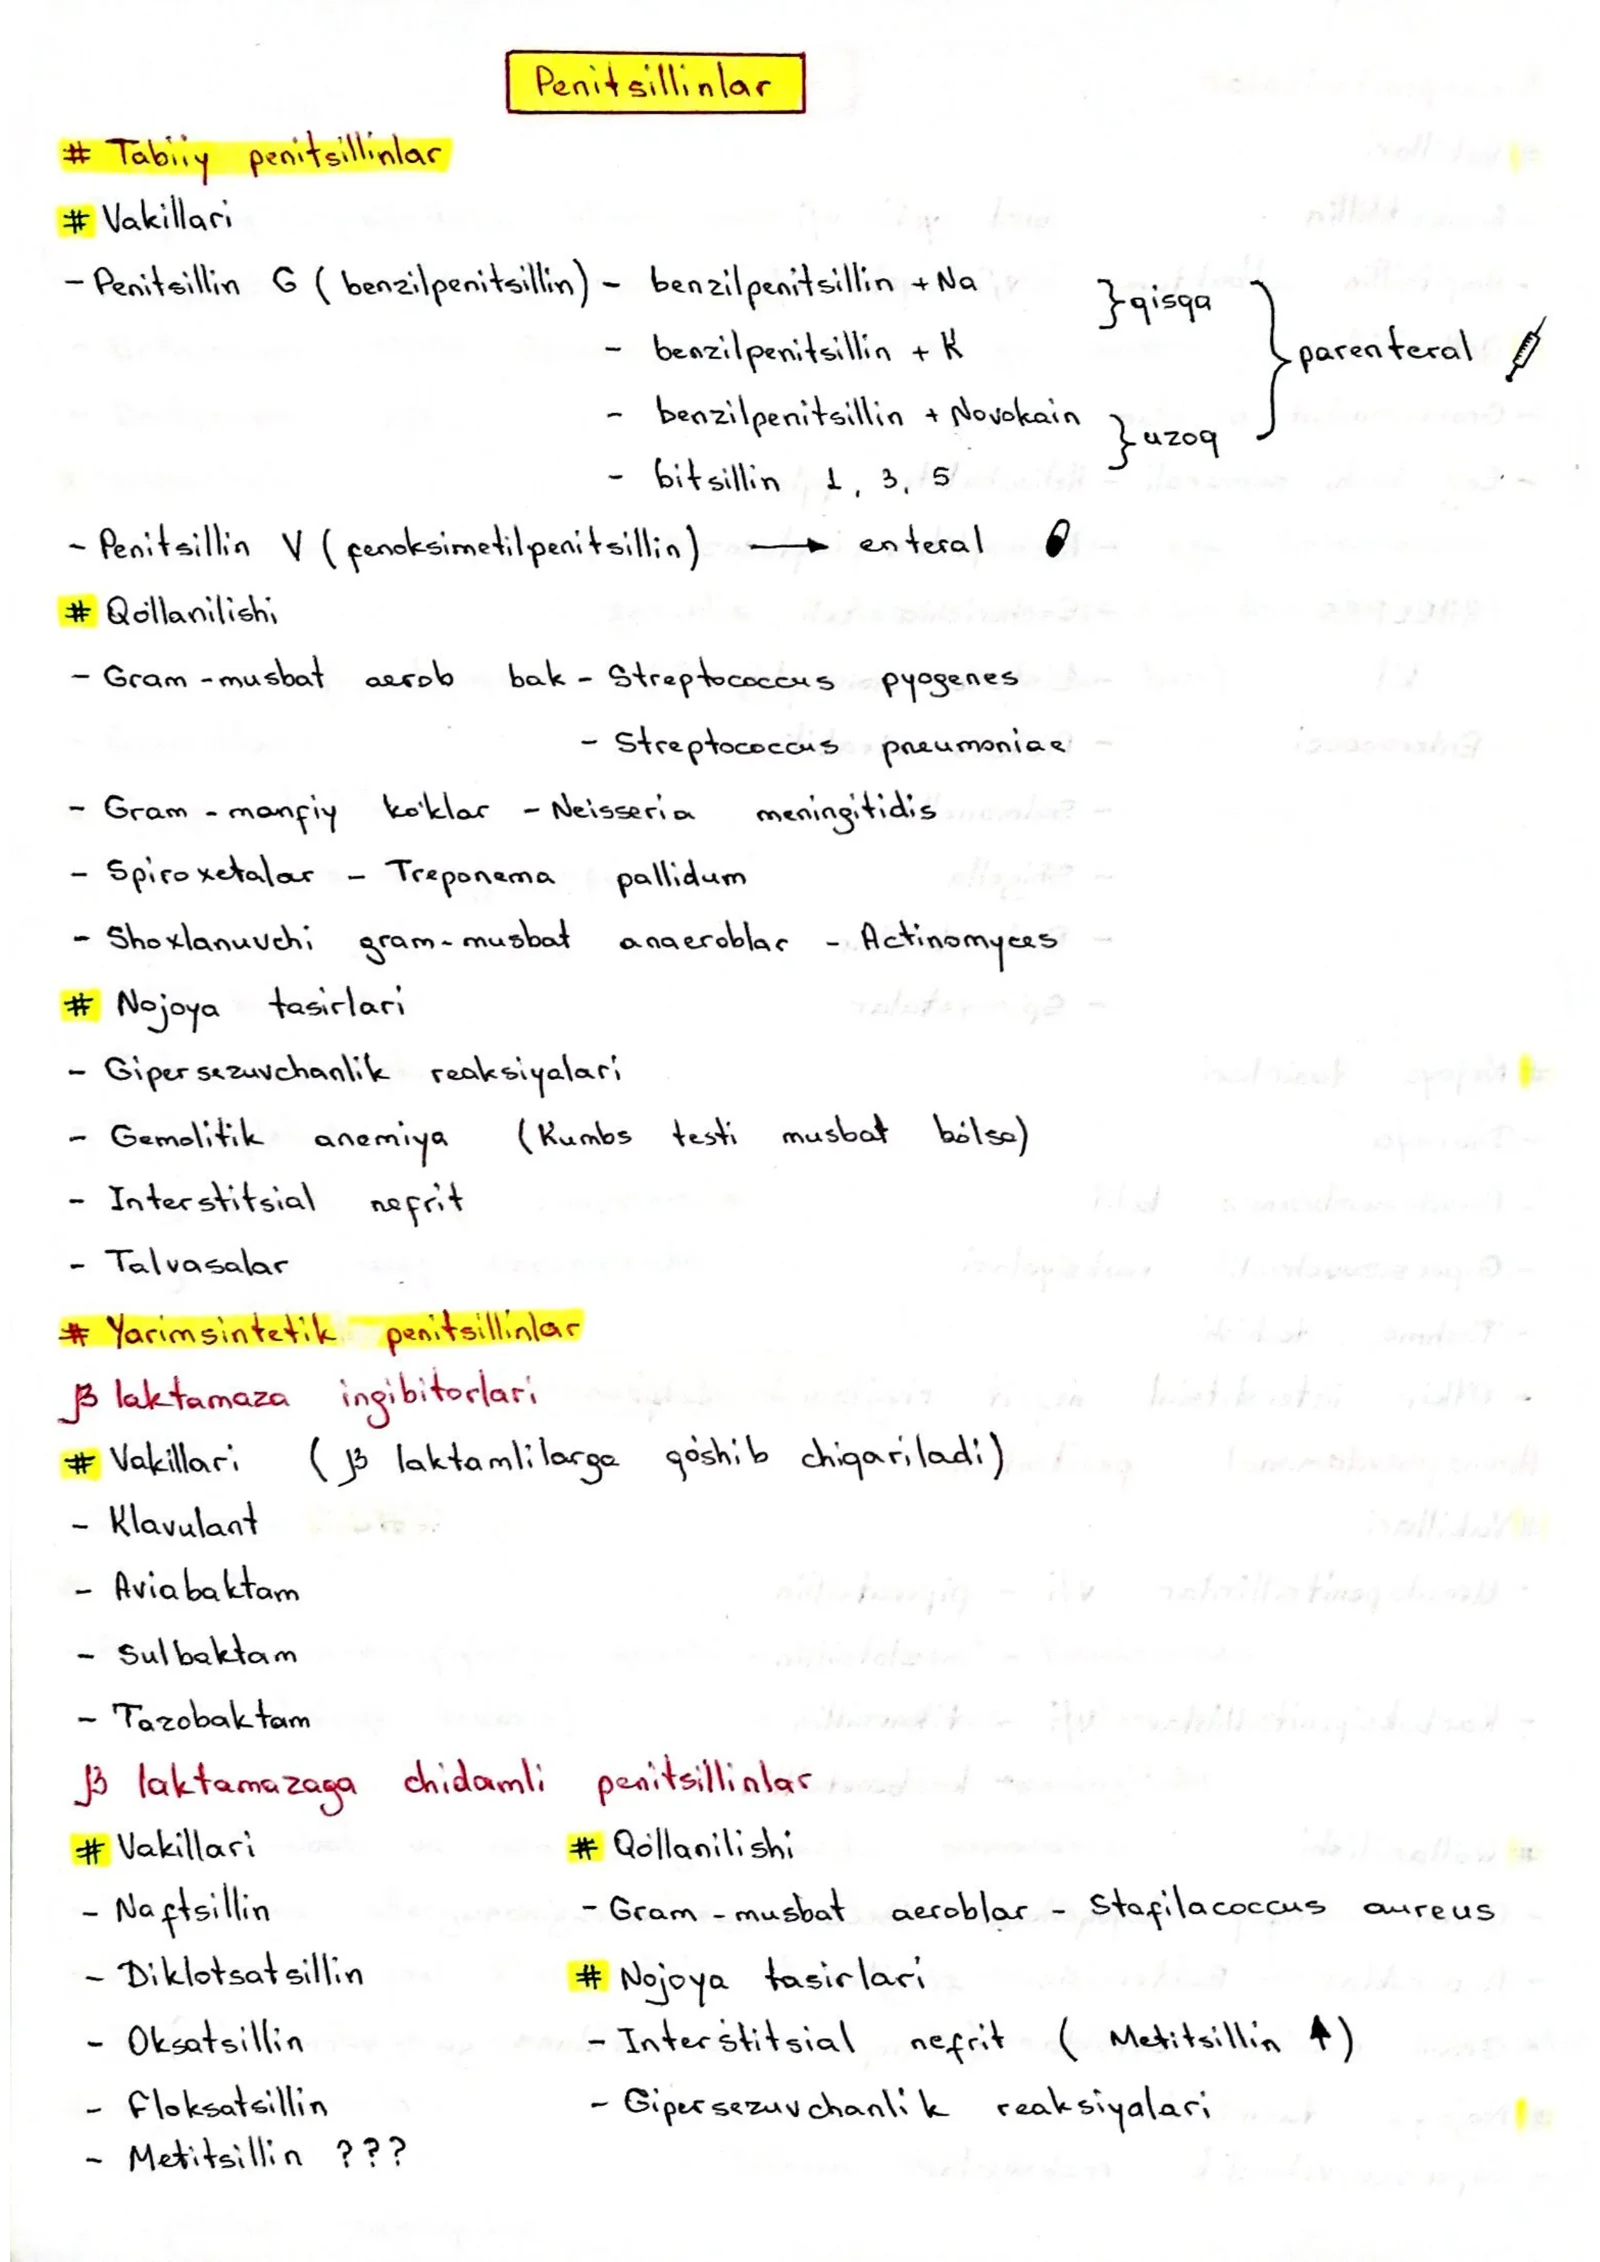 Penitsillinlar
# Tabiiy penitsillinlar
# Vakillari
- Penitsillin G (benzilpenitsillin) - benzilpenitsillin + Na } qisqa
- benzilpenitsillin + K
} parenteral
- benzilpenitsillin + Novokain } uzoq
- bitsillin 1, 3, 5
- Penitsillin V (fenoksimetilpenitsillin) → enteral
# Qóllanilishi
- Gram-musbat aerob bak - Streptococcus pyogenes
- Streptococcus pneumoniae
- Gram-manfiy ko'klar - Neisseria meningitidis
- Spiroxetalar - Treponema pallidum
- Shoxlanuvchi gram-musbat anaeroblar - Actinomyces
# Nojoya tasirlari
- Gipersezuvchanlik reaksiyalari
- Gemolitik anemiya (Kumbs testi musbat bólsa)
- Interstitsial nefrit
- Talvasalar
# Yarimsintetik penitsillinlar
β laktamaza ingibitorlari
# Vakillari (β laktamlilarga qóshib chiqariladi)
- Klavulant
- Aviabaktam
- Sulbaktam
- Tazobaktam
β laktamazaga chidamli penitsillinlar
# Vakillari
- Naftsillin
- Diklotsatsillin
- Oksatsillin
- Floksatsillin
- Metitsillin ???
# Qóllanilishi
- Gram-musbat aeroblar - Stafilacoccus aureus
# Nojoya tasirlari
- Interstitsial nefrit (Metitsillin ↑)
- Gipersezuvchanlik reaksiyalari